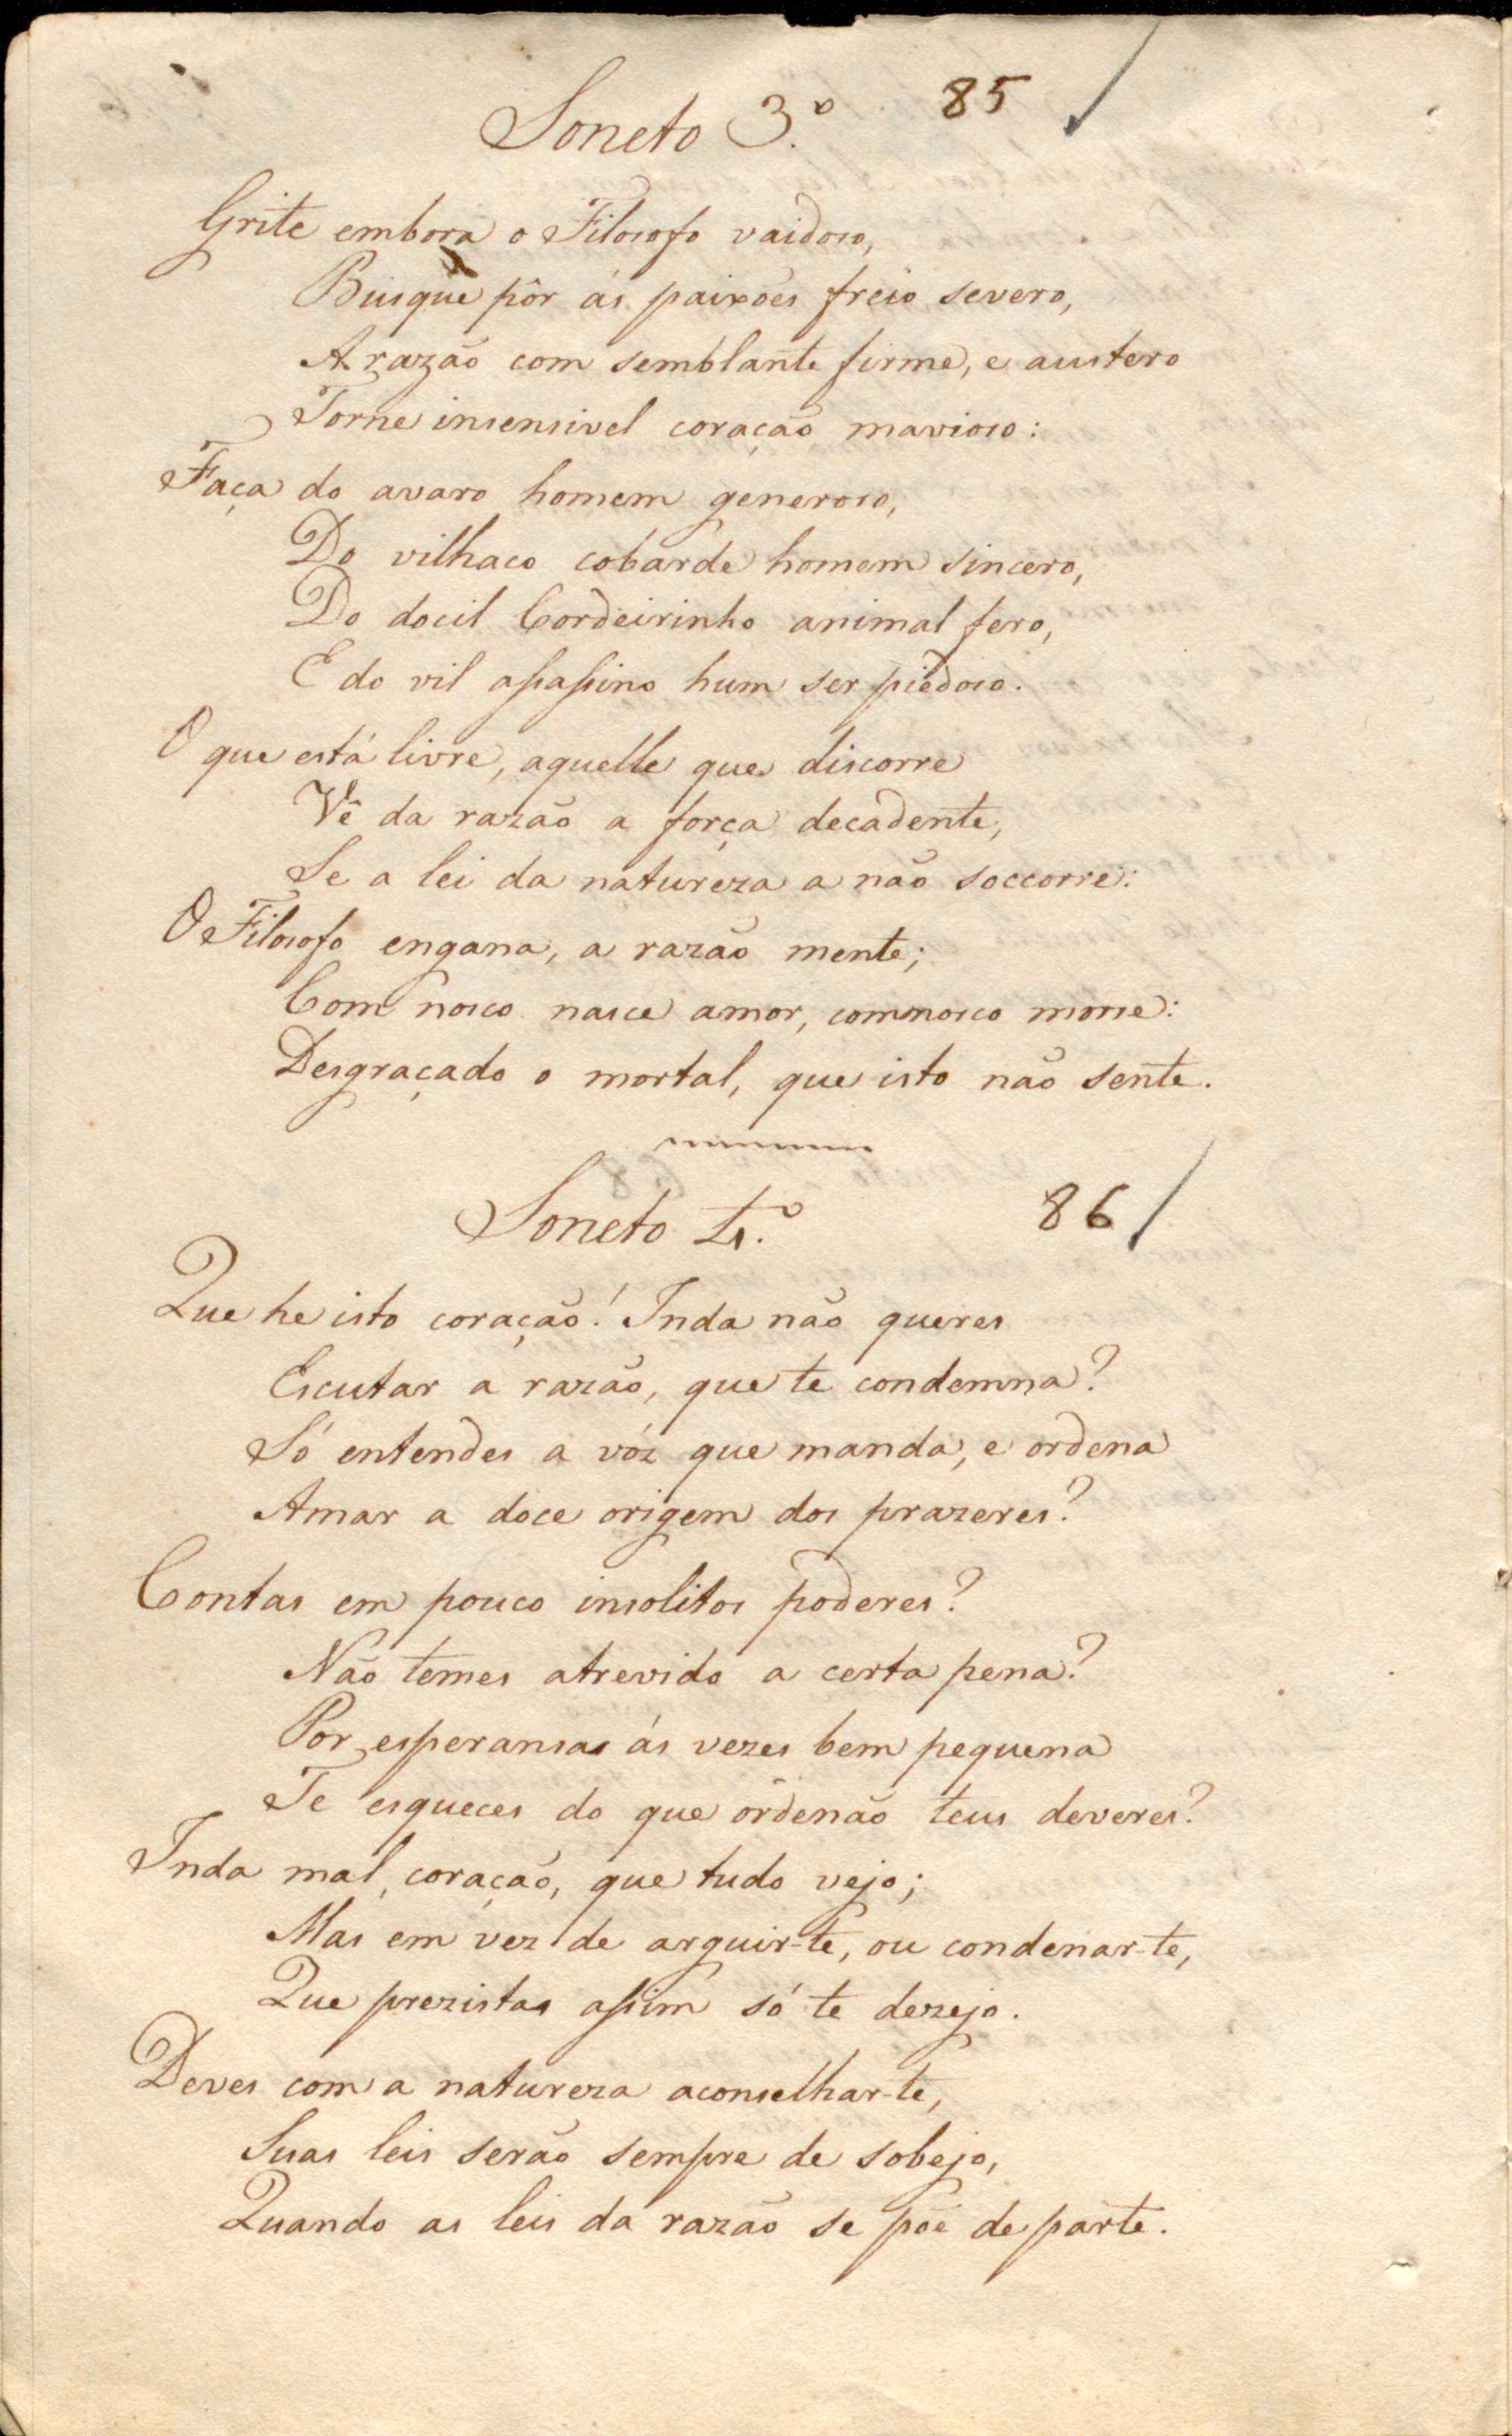 Soneto 3.º 85
Grite embora o Filosofo vaidoso,
Busque pôr ás paixões freio severo,
A razão com semblante firme, e austero
Torne insensivel coração mavioso:
Faça do avaro homem generoso,
Do vilhaco cobarde homem sincero,
Do docil Cordeirinho animal fero,
E do vil assassino hum ser piedoso.
O que está livre, aquelle que discorre
Vê da razão a força decadente,
Se a lei da natureza a não soccorre:
O Filosofo engana, a razão mente;
Com nosco nasce amor, comnosco morre:
Desgraçado o mortal, que isto não sente.
Soneto 4.º 86
Que he isto coração! Inda não queres
Escutar a razão, que te condemna?
Só entendes a vóz que manda, e ordena
Amar a doce origem dos prazeres?
Contas em pouco insolitos poderes?
Não temes atrevido a certa pena?
Por esperansas ás vezes bem pequena
Te esqueces do que ordenão teus deveres?
Inda mal, coração, que tudo vejo;
Mas em vez de arguir-te, ou condenar-te,
Que prezistas assim só te dezejo.
Deves com a natureza aconselhar-te,
Suas leis serão sempre de sobejo,
Quando as leis da razão se põe de parte.